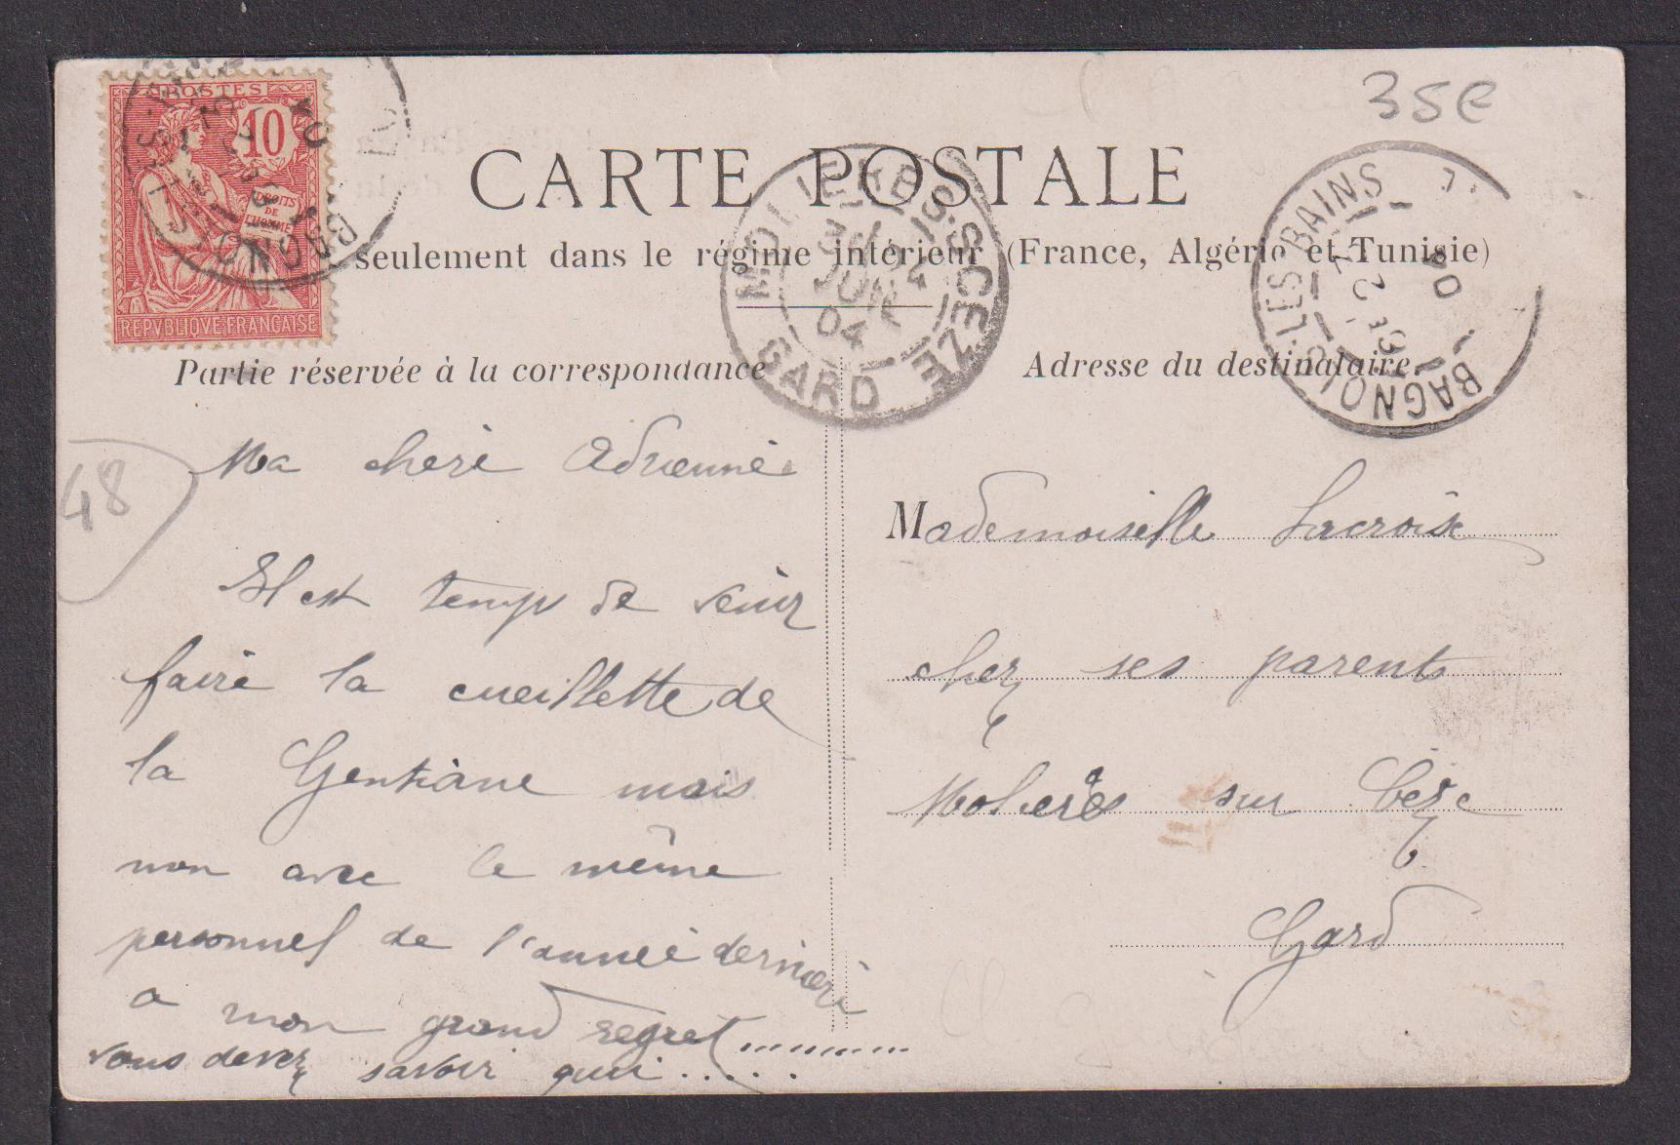 35€
POSTES
10
DROITS
DE
L'HOMME
REPVBLIQVE FRANÇAISE
CARTE POSTALE
seulement dans le régime intérieur (France, Algérie et Tunisie)
MOLIERES-S-CEZE
JUIN
04
GARD
BAGNOLS-LES-BAINS
04
Partie réservée à la correspondance
Adresse du destinataire
48
Ma chèrè Adrienne
Il est temps de venir
faire la cueillette de
la Gentiane mais
non avec le même
personnel de l'année dernière
a mon grand regret............
vous devez savoir qui.....
Mademoiselle Lacroix
chez ses parents
Molières sur Cèze
Gard